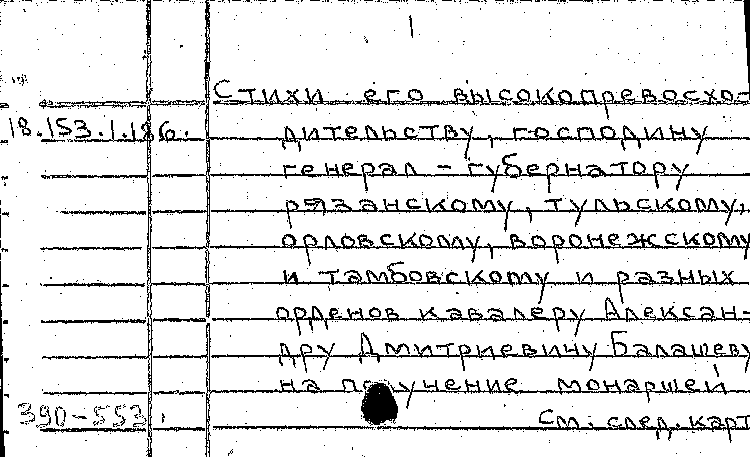 Стихи его высокопревосхо-
18.153.1.186.
дительству, господину
генерал - губернатору
рязанскому, тульскому,
орловскому, воронежскому
и тамбовскому и разных
орденов кавалеру Алексан-
дру Дмитриевичу Балашеву
на получение монаршей
390-553.
См. след. карт